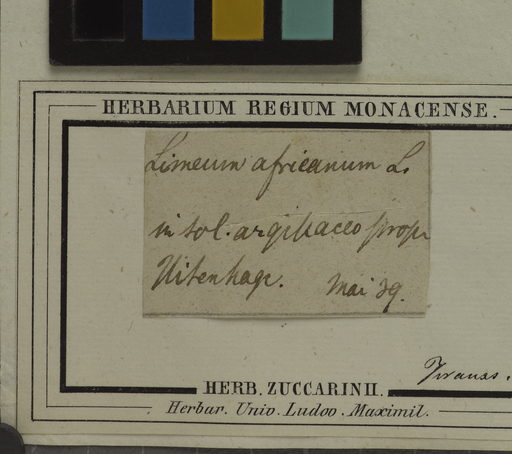 HERBARIUM REGIUM MONACENSE.
Limeum africanum L.
in sol. argillaceo prope
Uitenhage. Mai 39.
Krauss.
HERB. ZUCCARINII.
Herbar. Univ. Ludov. Maximil.